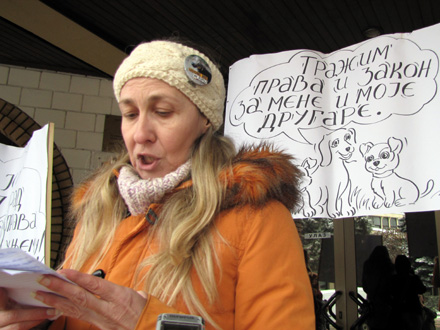 ТРАЖИМ
ПРАВА И ЗАКОН
ЗА МЕНЕ И МОЈЕ
ДРУГАРЕ.